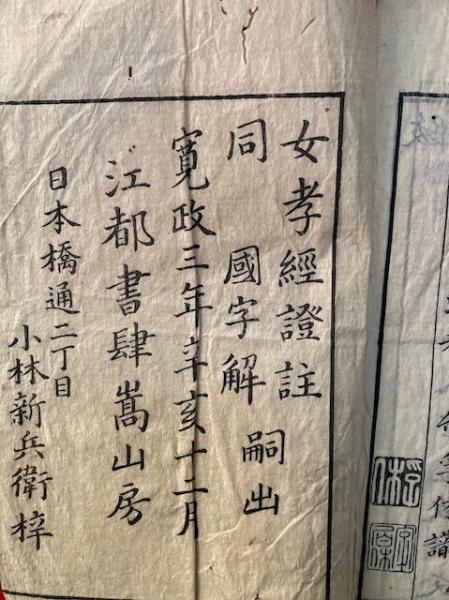 女孝經證註
同 國字解 嗣出
寛政三年辛亥十二月
江都書肆嵩山房
日本橋通二丁目
小林新兵衛梓